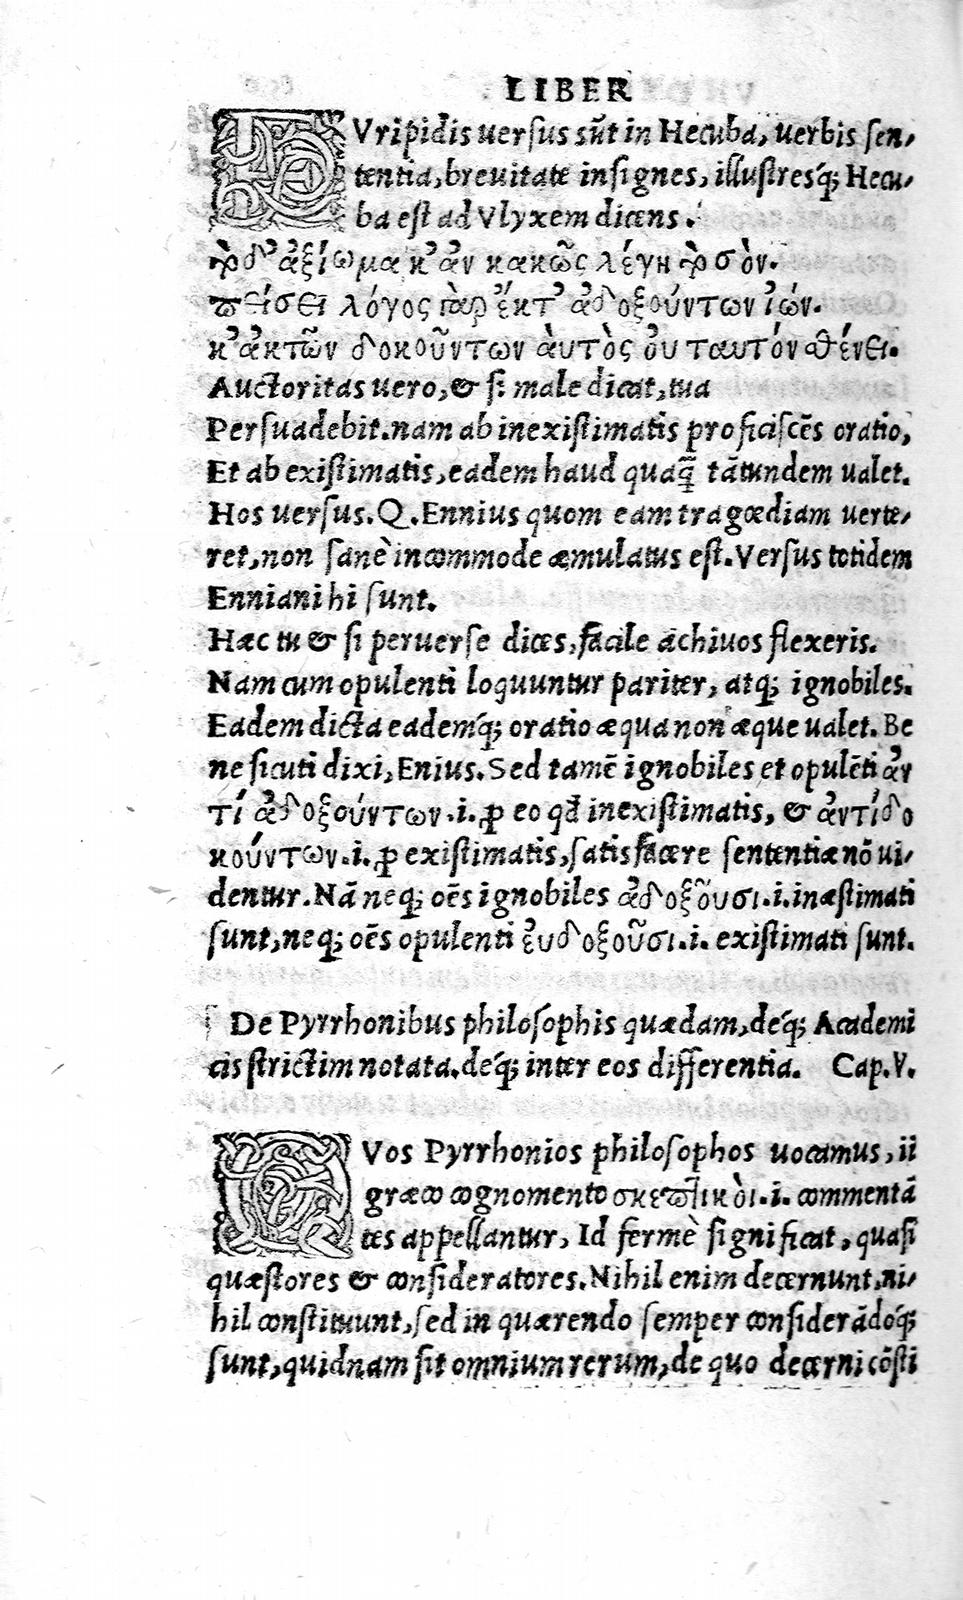 LIBER
EVripidis uersus sūt in Hecuba, uerbis sen-
tentia, breuitate insignes, illustresq́; Hecu-
ba est ad Vlyxem dicens.
τὸ δ' ἀξίωμα κ' ἂν κακῶς λέγη τὸ σὸν.
πείσει λόγος γὰρ ἔκτ' ἀδοξούντων ἰών.
κ' ἀκτῶν δοκοῦντων ἀυτὸς ὀυ ταυτόν σθένει.
Auctoritas uero, & si male dicat, tua
Persuadebit. nam ab inexistimatis proficiscēs oratio,
Et ab existimatis, eadem haud quaq̄ tātundem ualet.
Hos uersus. Q. Ennius quom eam tragœdiam uerte-
ret, non sanè incommode æmulatus est. Versus totidem
Enniani hi sunt.
Hæc tu & si peruerse dices, facile achiuos flexeris.
Nam cum opulenti loquuntur pariter, atq; ignobiles.
Eadem dicta eademq́; oratio æqua non æque ualet. Be
ne sicuti dixi, Enius. Sed tamē ignobiles et opulēti ἀν
τί ἀδοξούντων .i. ꝓ eo qđ inexistimatis, & ἀντί δο
κούντων .i. ꝓ existimatis, satisfacere sententiæ nō ui-
dentur. Nā neq; oēs ignobiles ἀδοξοῦσι .i. inæstimati
sunt, neq; oēs opulenti ἐυδοξοῦσι .i. existimati sunt.
De Pyrrhonibus philosophis quædam, deq́; Academi
cis strictim notata. deq́; inter eos differentia. Cap. V.
QVos Pyrrhonios philosophos uocamus, ii
græco cognomento σκεπτικὸι .i. commentā
tes appellantur, Id fermè significat, quasi
quæstores & consideratores. Nihil enim decernunt, ni-
hil constituunt, sed in quærendo semper considerādoq́;
sunt, quidnam sit omnium rerum, de quo decerni cōsti